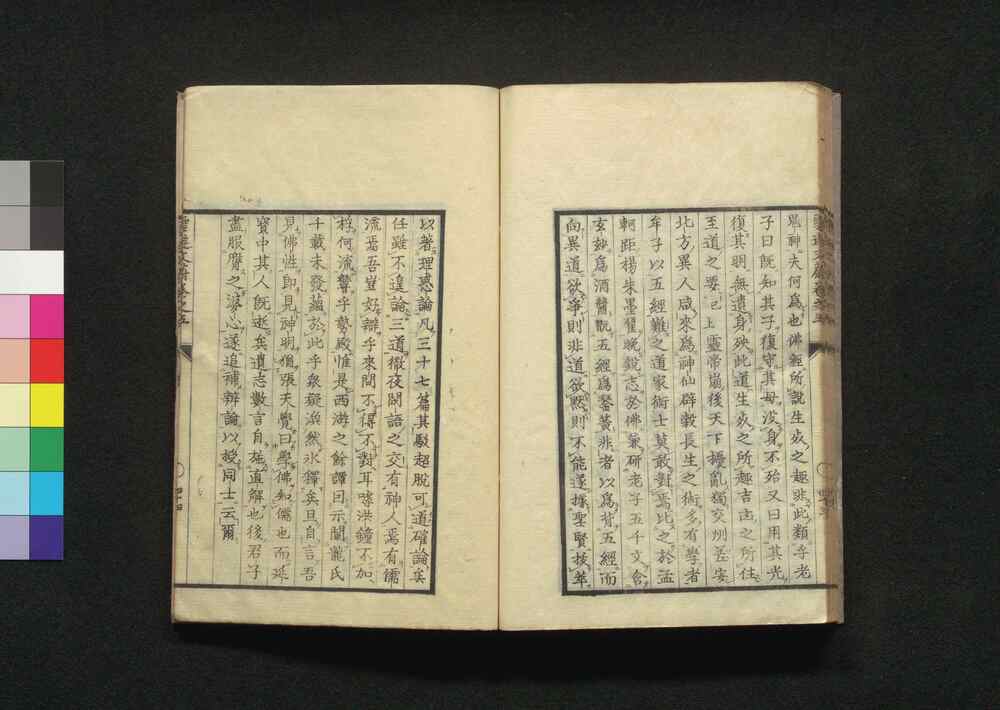 鬼神夫何爲也佛經所說生死之趣非此類乎老
子曰既知其子復守其母沒身不殆又曰用其光
復其明無遺身殃此道生死之所趣吉凶之所住
至道之要已上靈帝崩後天下擾亂獨交州差安
北方異人咸來爲神仙辟穀長生之術多有學者
牟子以五經難之道家術士莫敢對焉比之於孟
軻距楊朱墨翟晚銳志於佛兼研老子五千文含
玄妙爲酒醬翫五經爲琴簧非者以爲背五經而
向異道欲爭則非道欲默則不能遂採聖賢拔萃
以著理惑論凡三十七篇其駁超脫可道確論矣
任雖不遑論三道撤夜閑語之交有神人焉有儒
流焉吾豈好辯乎來問不得不對耳嗟洪鐘不加
何流響乎勢殿惟是西海之餘譚曰示蘭
千載未發蘊於此乎衆疑渙然氷釋矣且自言吾
見佛性即見神明猶張天覺曰學佛知儒也而延
寶中其人既逝矣遺志數言自施直解也後君子
盡服膺之婆心遂追補辯論以授同士云爾
卷之五
四十四